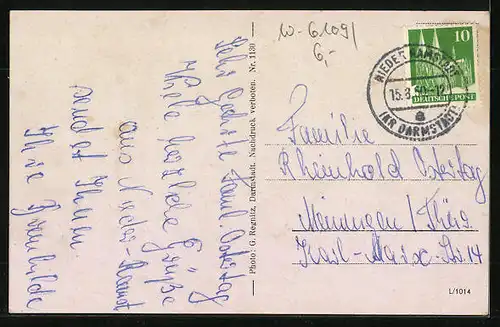 Sehr geehrte Famil. Ostertag
Viele herzliche Grüße
aus Nieder-Ramst
sendet Ihnen
Ihre Brunhilde
Photo: G. Regnitz, Darmstadt. Nachdruck verboten. Nr. 1130
6,-
NIEDER RAMSTADT
15.3.50-12
(KR DARMSTADT)
a
10
DEUTSCHE POST
Familie
Rheinhold Ostertag
Meiningen/Thür.
Karl-Marx-Str 14
L/1014